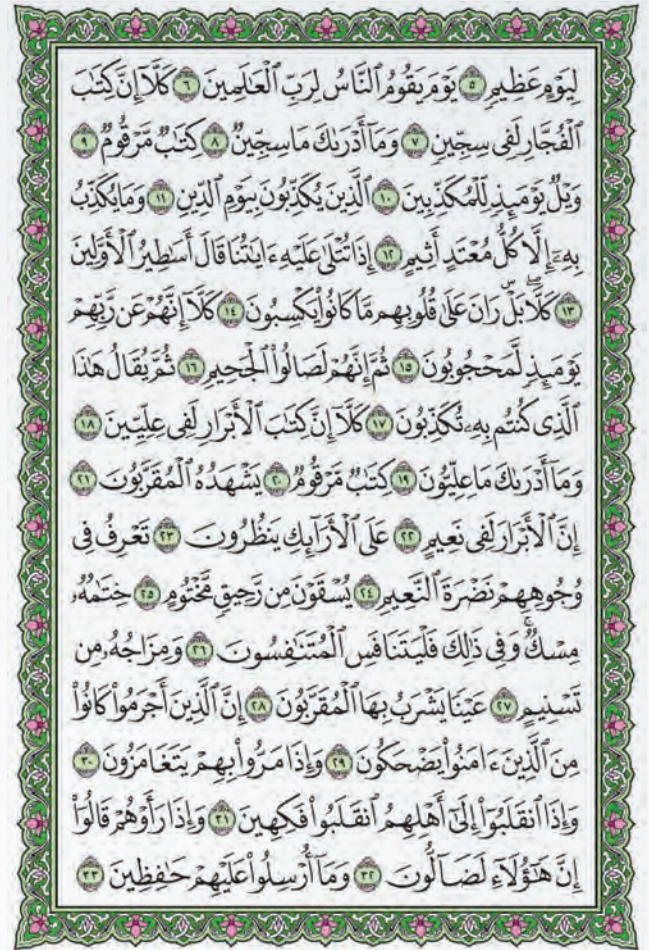 لِيَوْمٍ عَظِيمٍ ٥ يَوْمَ يَقُومُ ٱلنَّاسُ لِرَبِّ ٱلْعَـٰلَمِينَ ٦ كَلَّآ إِنَّ كِتَـٰبَ
ٱلْفُجَّارِ لَفِى سِجِّينٍ ٧ وَمَآ أَدْرَىٰكَ مَا سِجِّينٌ ٨ كِتَـٰبٌ مَّرْقُومٌ ٩
وَيْلٌ يَوْمَئِذٍ لِّلْمُكَذِّبِينَ ١٠ ٱلَّذِينَ يُكَذِّبُونَ بِيَوْمِ ٱلدِّينِ ١١ وَمَا يُكَذِّبُ
بِهِۦٓ إِلَّا كُلُّ مُعْتَدٍ أَثِيمٍ ١٢ إِذَا تُتْلَىٰ عَلَيْهِ ءَايَـٰتُنَا قَالَ أَسَـٰطِيرُ ٱلْأَوَّلِينَ
١٣ كَلَّا ۖ بَلْ ۜ رَانَ عَلَىٰ قُلُوبِهِم مَّا كَانُوا۟ يَكْسِبُونَ ١٤ كَلَّآ إِنَّهُمْ عَن رَّبِّهِمْ
يَوْمَئِذٍ لَّمَحْجُوبُونَ ١٥ ثُمَّ إِنَّهُمْ لَصَالُوا۟ ٱلْجَحِيمِ ١٦ ثُمَّ يُقَالُ هَـٰذَا
ٱلَّذِى كُنتُم بِهِۦ تُكَذِّبُونَ ١٧ كَلَّآ إِنَّ كِتَـٰبَ ٱلْأَبْرَارِ لَفِى عِلِّيِّينَ ١٨
وَمَآ أَدْرَىٰكَ مَا عِلِّيُّونَ ١٩ كِتَـٰبٌ مَّرْقُومٌ ٢٠ يَشْهَدُهُ ٱلْمُقَرَّبُونَ ٢١
إِنَّ ٱلْأَبْرَارَ لَفِى نَعِيمٍ ٢٢ عَلَى ٱلْأَرَآئِكِ يَنظُرُونَ ٢٣ تَعْرِفُ فِى
وُجُوهِهِمْ نَضْرَةَ ٱلنَّعِيمِ ٢٤ يُسْقَوْنَ مِن رَّحِيقٍ مَّخْتُومٍ ٢٥ خِتَـٰمُهُۥ
مِسْكٌ ۚ وَفِى ذَٰلِكَ فَلْيَتَنَافَسِ ٱلْمُتَنَـٰفِسُونَ ٢٦ وَمِزَاجُهُۥ مِن
تَسْنِيمٍ ٢٧ عَيْنًا يَشْرَبُ بِهَا ٱلْمُقَرَّبُونَ ٢٨ إِنَّ ٱلَّذِينَ أَجْرَمُوا۟ كَانُوا۟
مِنَ ٱلَّذِينَ ءَامَنُوا۟ يَضْحَكُونَ ٢٩ وَإِذَا مَرُّوا۟ بِهِمْ يَتَغَامَزُونَ ٣٠
وَإِذَا ٱنقَلَبُوٓا۟ إِلَىٰٓ أَهْلِهِمُ ٱنقَلَبُوا۟ فَكِهِينَ ٣١ وَإِذَا رَأَوْهُمْ قَالُوٓا۟
إِنَّ هَـٰٓؤُلَآءِ لَضَآلُّونَ ٣٢ وَمَآ أُرْسِلُوا۟ عَلَيْهِمْ حَـٰفِظِينَ ٣٣